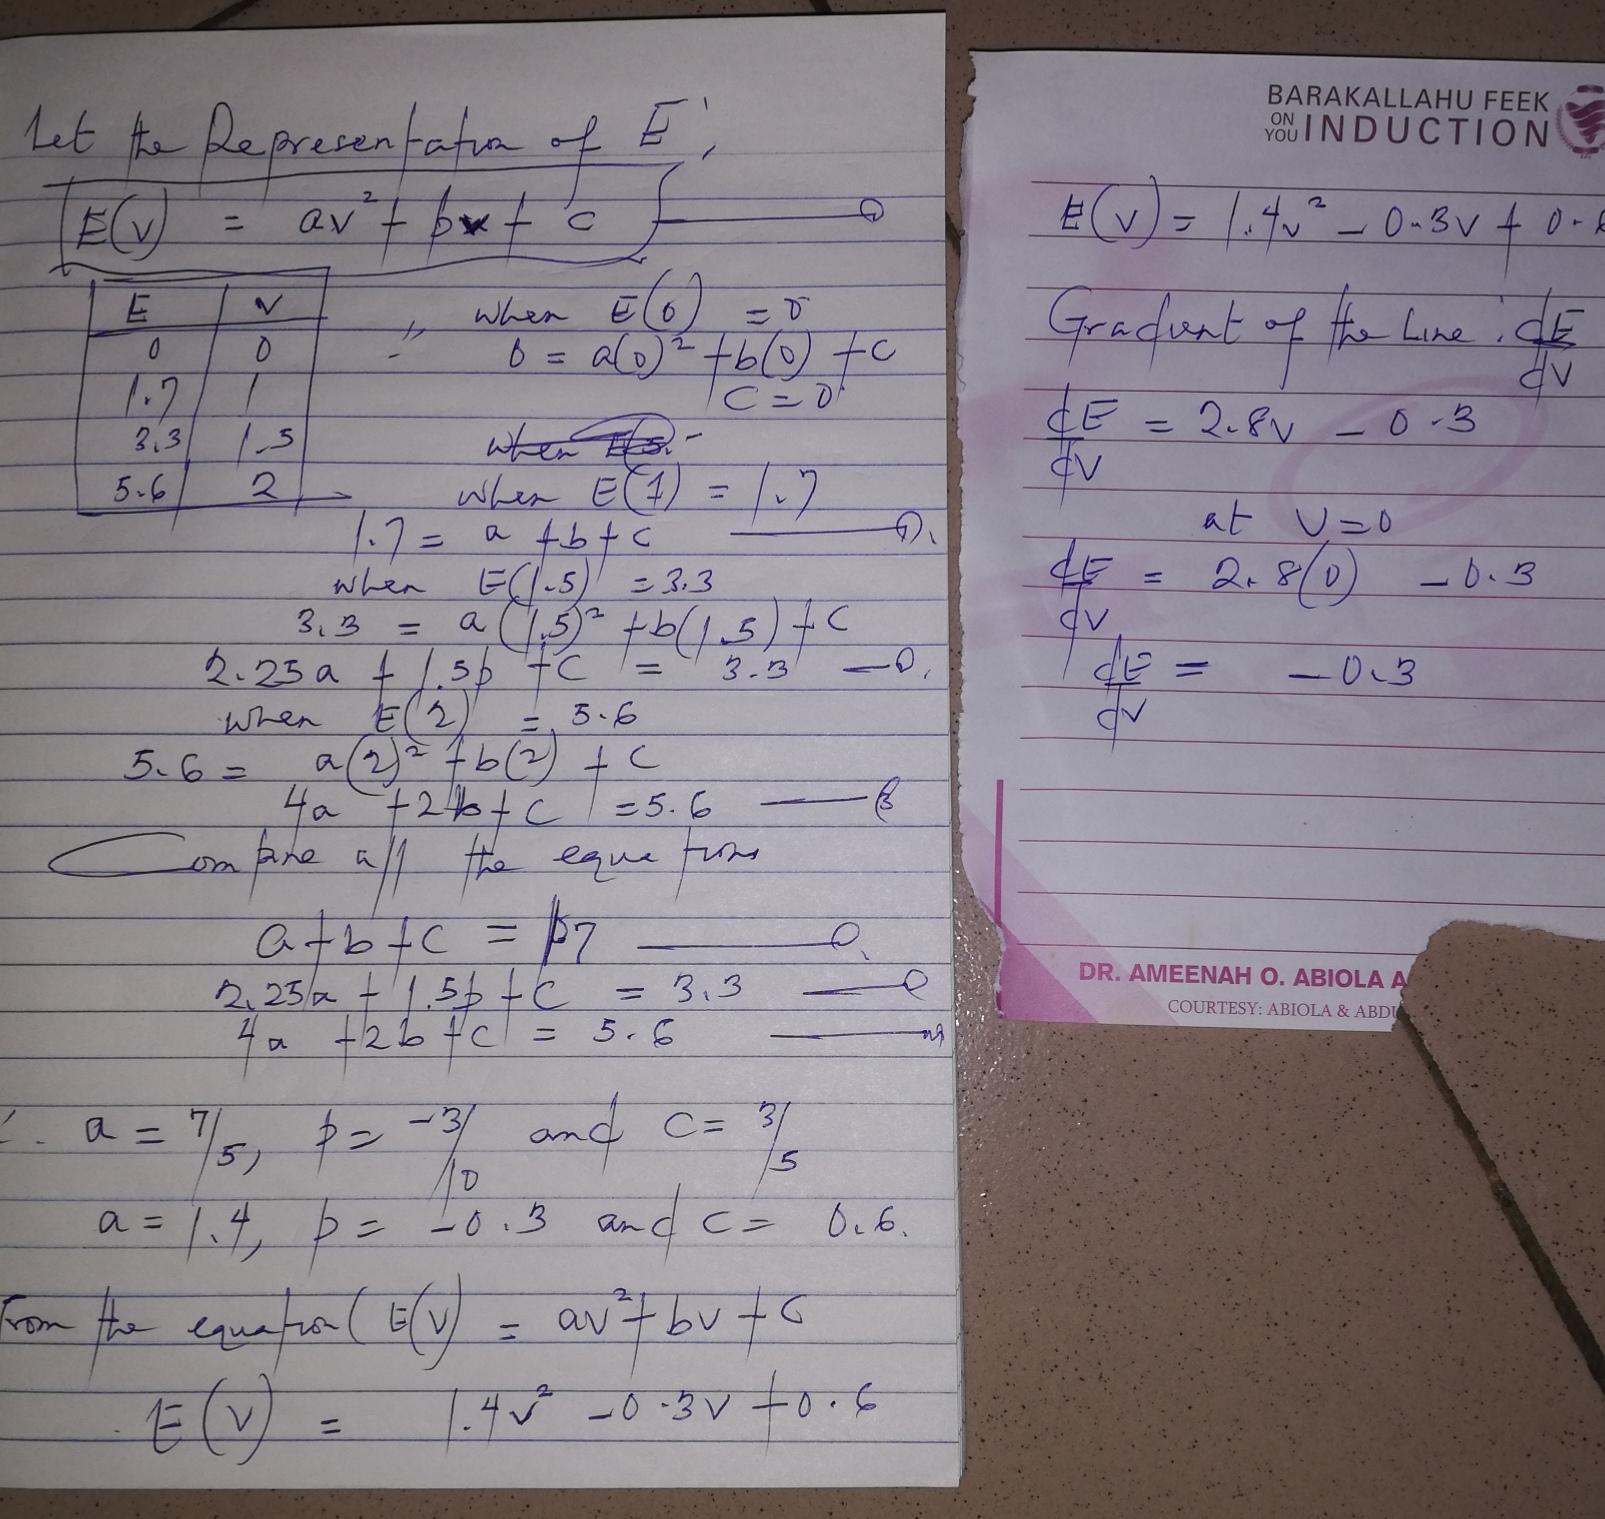 Let the Representation of E;
E(v) = av² + bv + c
E v
0 0
1.7 1
3.3 1.5
5.6 2
when E(0) = 0
0 = a(0)² + b(0) + c
c = 0
when E(1) = 1.7
1.7 = a + b + c
when E(1.5) = 3.3
3.3 = a(1.5)² + b(1.5) + c
2.25a + 1.5b + c = 3.3
when E(2) = 5.6
5.6 = a(2)² + b(2) + c
4a + 2b + c = 5.6
Combine all the equations
a + b + c = 1.7
2.25a + 1.5b + c = 3.3
4a + 2b + c = 5.6
∴ a = 7/5, b = -3/10 and c = 3/5
a = 1.4, b = -0.3 and c = 0.6.
From the equation (E(v) = av² + bv + c
E(v) = 1.4v² - 0.3v + 0.6
BARAKALLAHU FEEK
ON YOU INDUCTION
E(v) = 1.4v² - 0.3v + 0.
Gradient of the Line: dE/dv
dE/dv = 2.8v - 0.3
at v = 0
dE/dv = 2.8(0) - 0.3
dE/dv = -0.3
DR. AMEENAH O. ABIOLA A
COURTESY: ABIOLA & ABDU